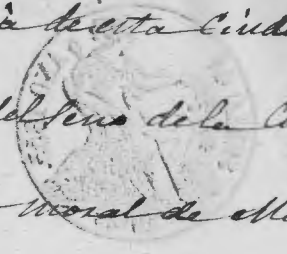 a de esta Ciuda
del seno de la C
moral de Ma